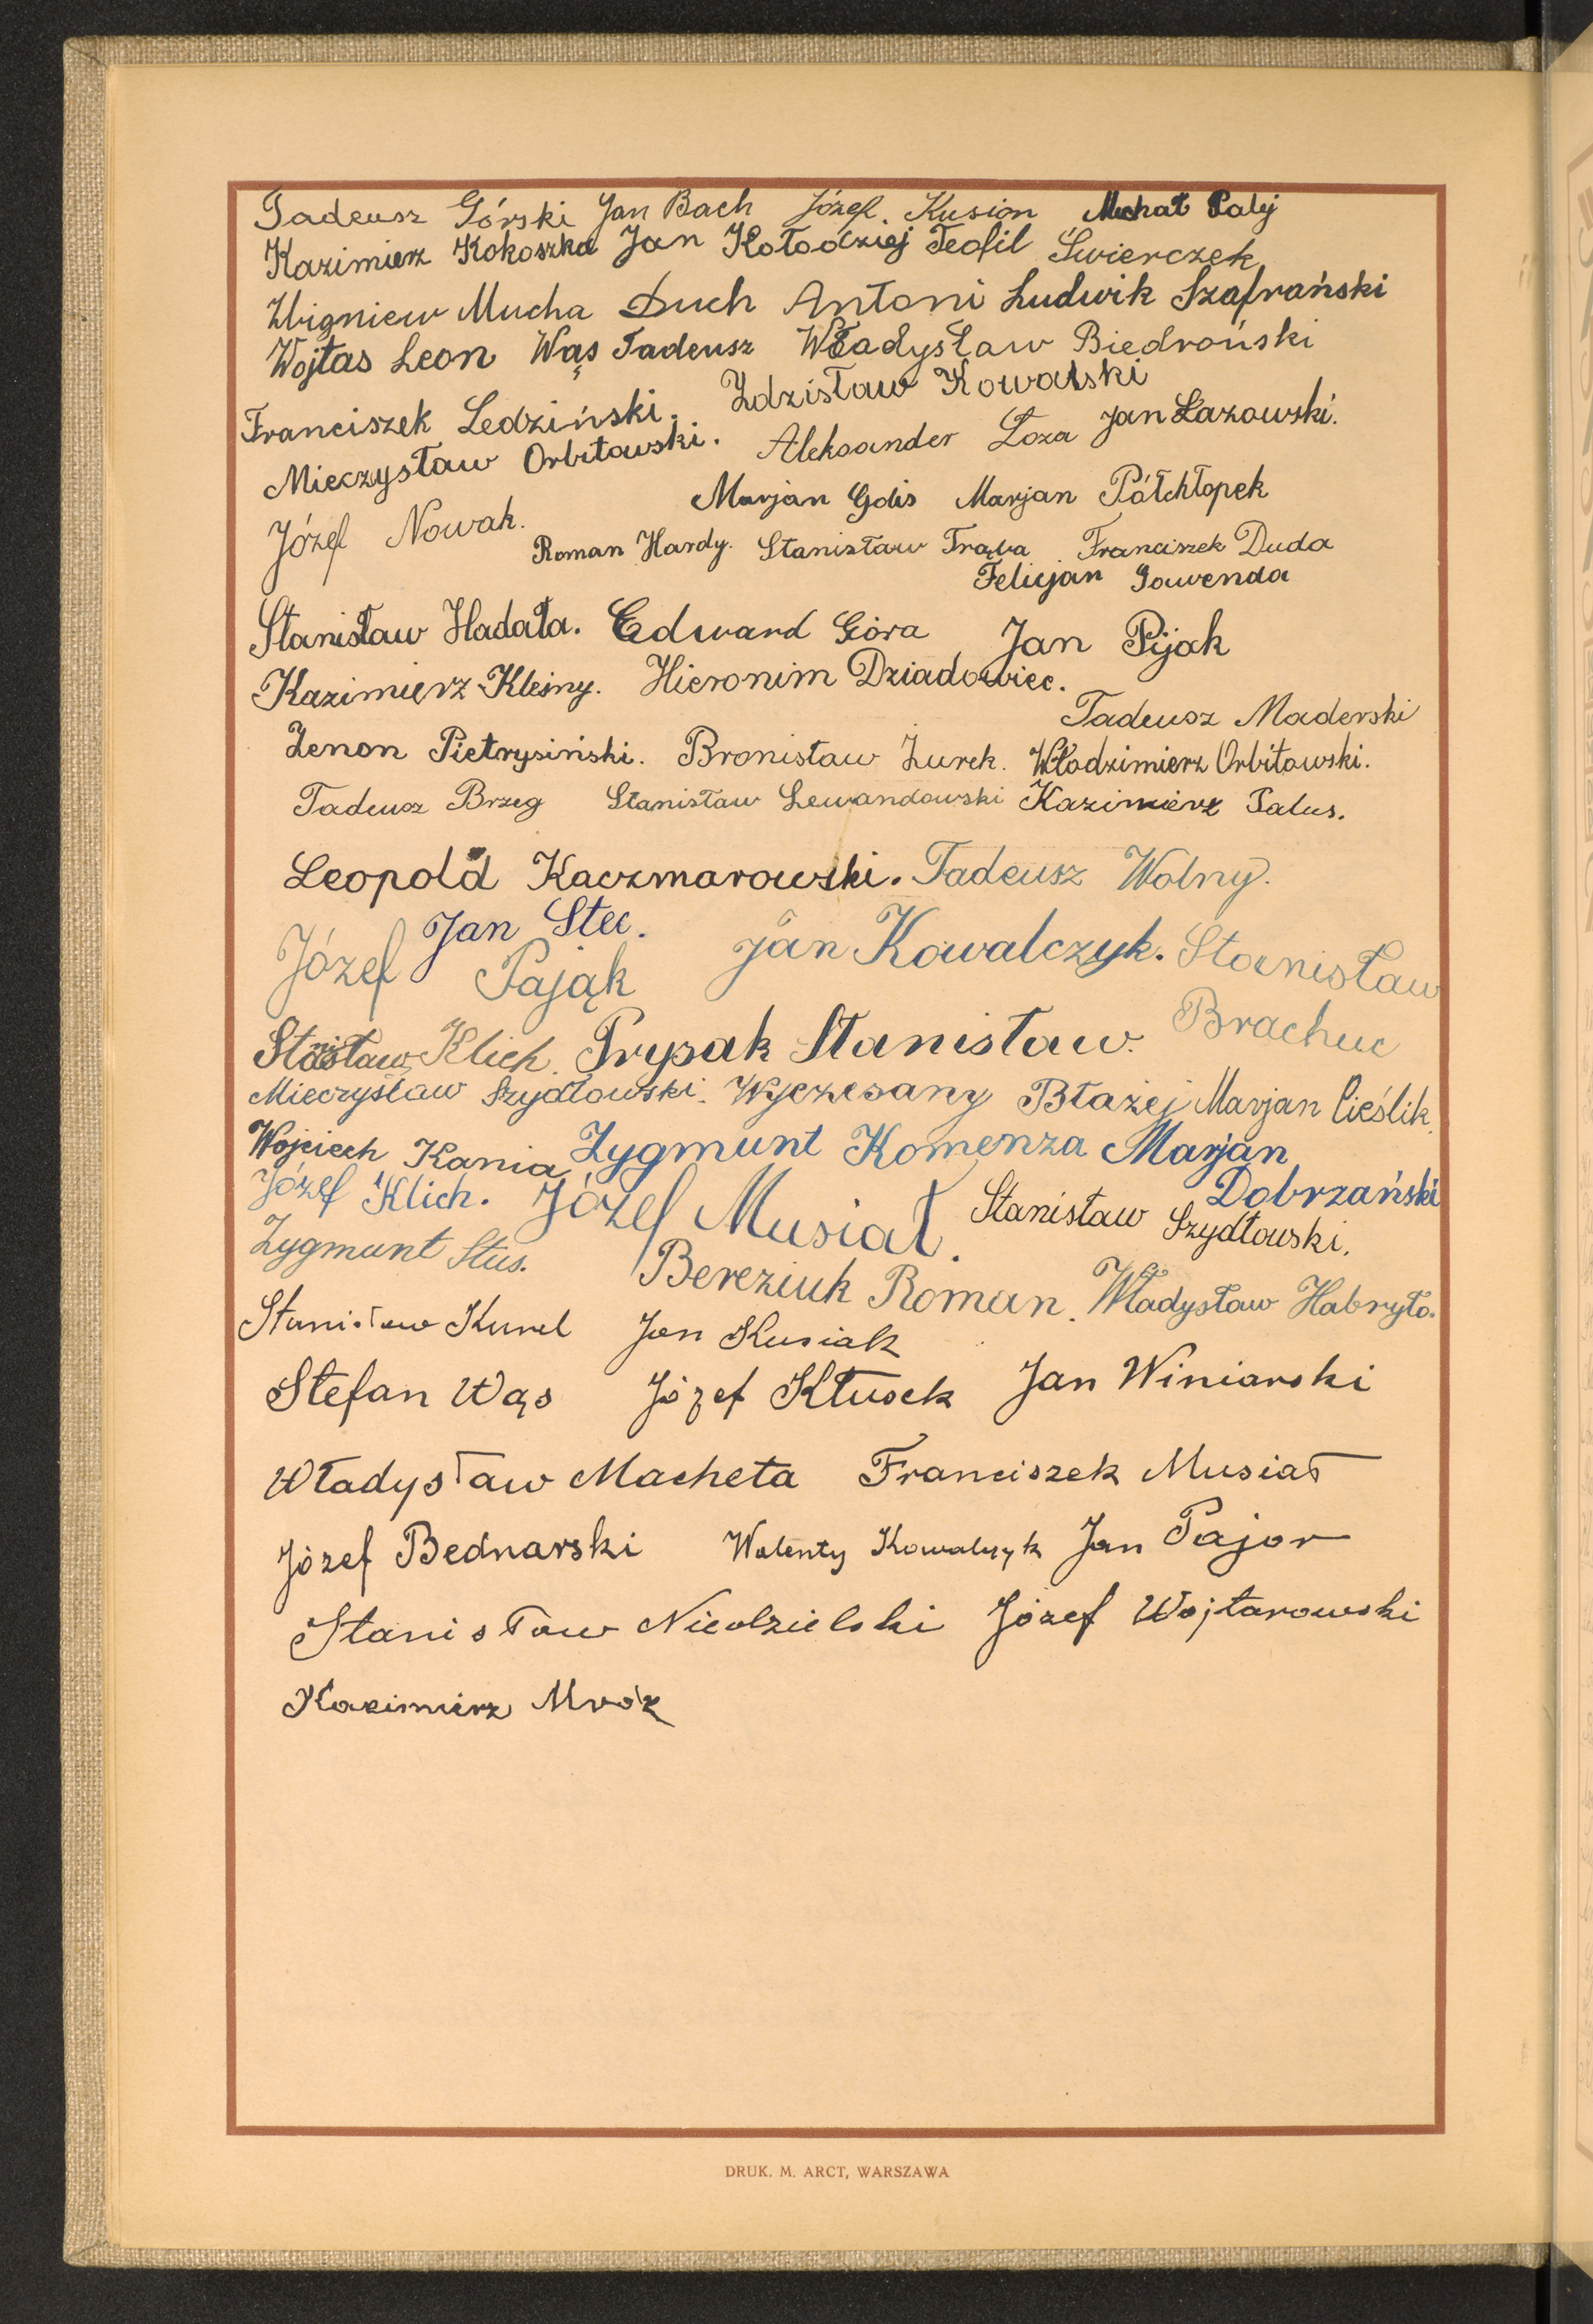 Tadeusz Górski Jan Bach Józef. Kusion Michał Palij
Kazimierz Kokoszka Jan Kołodziej Teofil Świerczek
Zbigniew Mucha Duch Antoni Ludwik Szafrański
Wojtas Leon Wąs Tadeusz Władysław Biedroński
Franciszek Ledziński. Zdzisław Kowalski
Mieczysław Orbitowski. Aleksander Łoza Jan Łazowski.
Józef Nowak. Marjan Golis Marjan Półchłopek
Roman Hardy. Stanisław Trąba Franciszek Duda
Felicjan Gawenda
Stanisław Hadała. Edward Góra Jan Pijak
Kazimierz Kleśny. Hieronim Dziadowiec.
Tadeusz Maderski
Zenon Pietrysiński. Bronisław Żurek. Włodzimierz Orbitowski.
Tadeusz Brzeg Stanisław Lewandowski Kazimierz Palus.
Leopold Kaczmarowski. Tadeusz Wolny.
Jan Stec.
Józef Pająk Jan Kowalczyk. Stanisław
Brachuc
Stanisław Klich. Prypak Stanisław.
Mieczysław Szydłowski. Wyczesany Błażej Marjan Cieślik.
Wojciech Kania Zygmunt Komenza Marjan
Dobrzański
Józef Klich. Józef Musiał. Stanisław Szydłowski.
Zygmunt Stus. Bereziuk Roman. Władysław Habryło.
Stanisław Kurel Jan Kusiak
Stefan Wąs Józef Kłusek Jan Winiarski
Władysław Macheta Franciszek Musiał
Józef Bednarski Walenty Kowalczyk Jan Pajor
Stanisław Niedzielski Józef Wojtarowski
Kazimierz Mróz
DRUK. M. ARCT, WARSZAWA